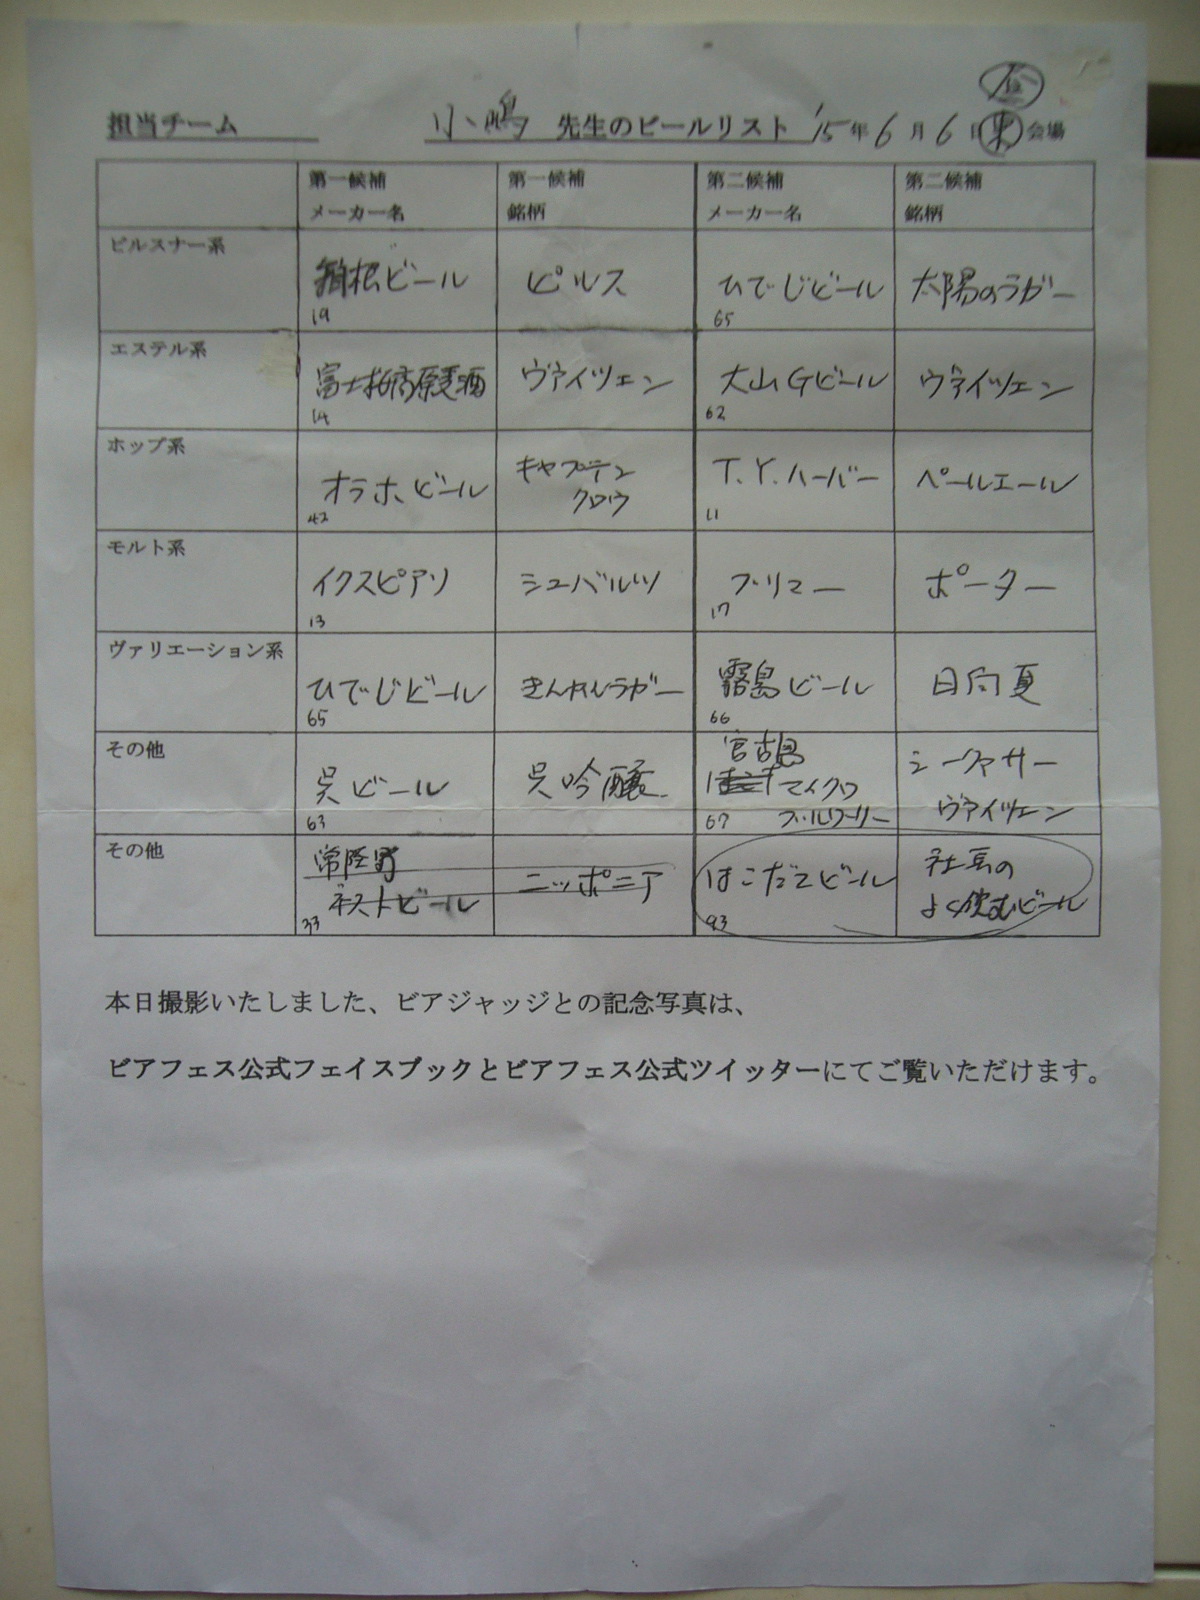 担当チーム 小嶋 先生のビールリスト '15年6月6日 東 会場
第一候補 第一候補 第二候補 第二候補
メーカー名 銘柄 メーカー名 銘柄
ピルスナー系
箱根ビール ピルス ひでじビール 太陽のラガー
19 65
エステル系
富士桜高原麦酒 ヴァイツェン 大山Gビール ヴァイツェン
14 62
ホップ系
オラホビール キャプテン T.Y.ハーバー ペールエール
クロウ
42 11
モルト系
イクスピアリ シュバルツ ブリマー ポーター
13 17
ヴァリエーション系
ひでじビール きんかんラガー 霧島ビール 日向夏
65 66
その他 宮古島
呉ビール 呉吟醸 マイクロ シークァサー
63 67 ブルワリー ヴァイツェン
その他 常陸野
ネストビール ニッポニア はこだてビール 社長の
よく飲むビール
33 93
本日撮影いたしました、ビアジャッジとの記念写真は、
ビアフェス公式フェイスブックとビアフェス公式ツイッターにてご覧いただけます。